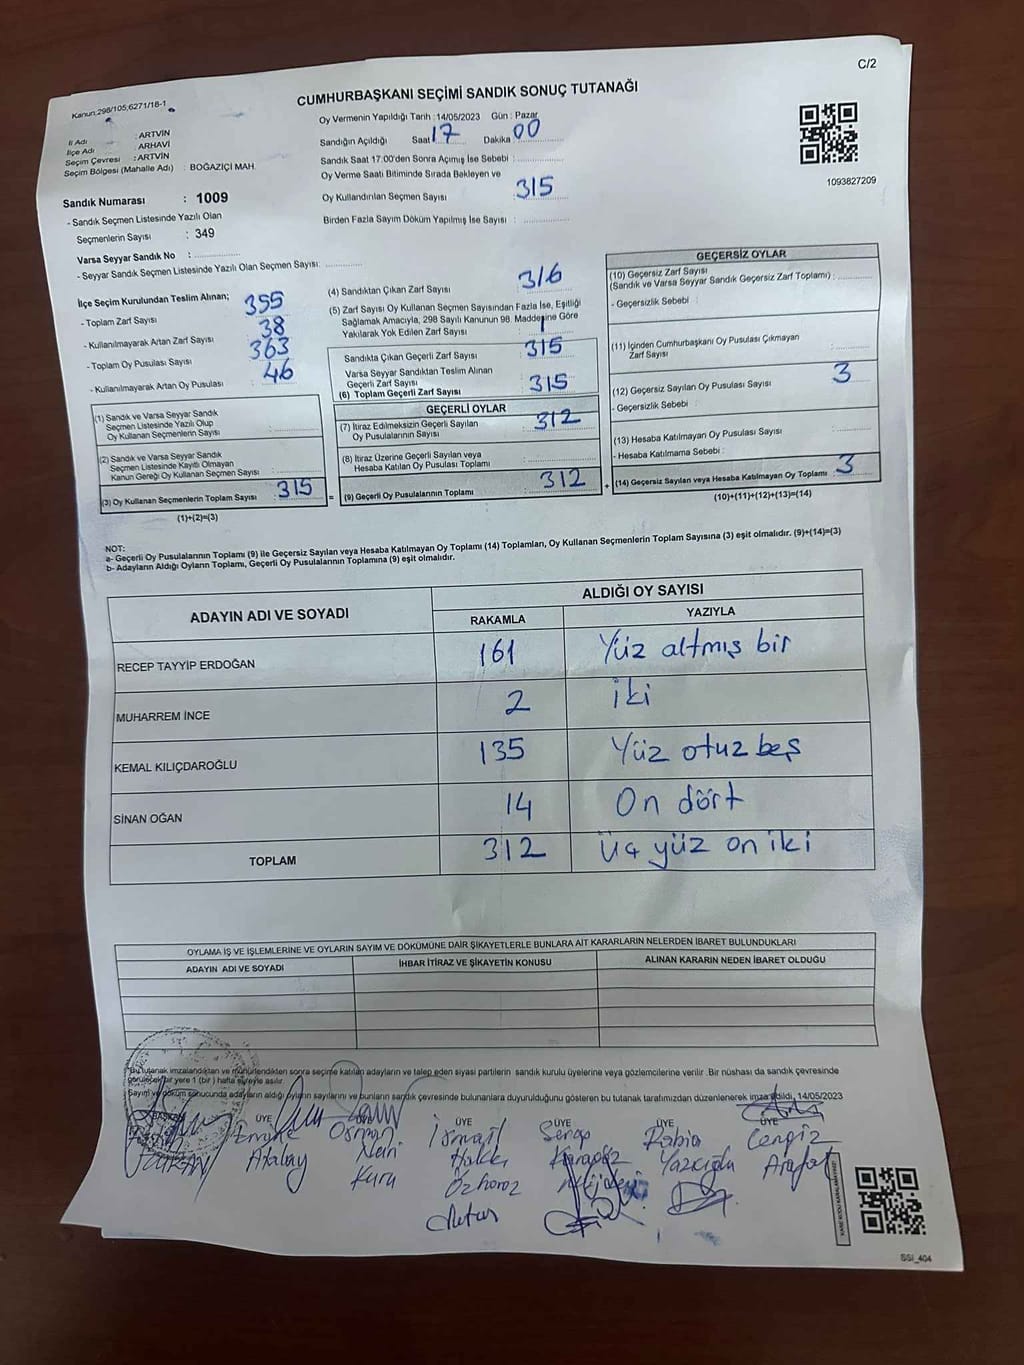 C/2
Kanun:298/105;6271/18-1
CUMHURBAŞKANI SEÇİMİ SANDIK SONUÇ TUTANAĞI
İl Adı : ARTVİN
İlçe Adı : ARHAVİ
Seçim Çevresi : ARTVİN
Seçim Bölgesi (Mahalle Adı) : BOĞAZİÇİ MAH.
Sandık Numarası : 1009
- Sandık Seçmen Listesinde Yazılı Olan
Seçmenlerin Sayısı : 349
Varsa Seyyar Sandık No :
- Seyyar Sandık Seçmen Listesinde Yazılı Olan Seçmen Sayısı:
Oy Vermenin Yapıldığı Tarih : 14/05/2023 Gün : Pazar
Sandığın Açıldığı Saat 17 Dakika 00
Sandık Saat 17.00'den Sonra Açımış İse Sebebi :
Oy Verme Saati Bitiminde Sırada Bekleyen ve
Oy Kullandırılan Seçmen Sayısı 315
Birden Fazla Sayım Döküm Yapılmış İse Sayısı :
1093827209
İlçe Seçim Kurulundan Teslim Alınan;
- Toplam Zarf Sayısı 355
- Kullanılmayarak Artan Zarf Sayısı 38
- Toplam Oy Pusulası Sayısı 363
- Kullanılmayarak Artan Oy Pusulası 46
(1) Sandık ve Varsa Seyyar Sandık
Seçmen Listesinde Yazılı Olup
Oy Kullanan Seçmenlerin Sayısı
(2) Sandık ve Varsa Seyyar Sandık
Seçmen Listesinde Kayıtlı Olmayan
Kanun Gereği Oy Kullanan Seçmen Sayısı
(3) Oy Kullanan Seçmenlerin Toplam Sayısı 315
(1)+(2)=(3)
(4) Sandıktan Çıkan Zarf Sayısı 316
(5) Zarf Sayısı Oy Kullanan Seçmen Sayısından Fazla İse, Eşitliği
Sağlamak Amacıyla, 298 Sayılı Kanunun 98. Maddesine Göre
Yakılarak Yok Edilen Zarf Sayısı 1
Sandıkta Çıkan Geçerli Zarf Sayısı 315
Varsa Seyyar Sandıktan Teslim Alınan
Geçerli Zarf Sayısı
(6) Toplam Geçerli Zarf Sayısı 315
GEÇERLİ OYLAR
(7) İtiraz Edilmeksizin Geçerli Sayılan
Oy Pusulalarının Sayısı 312
(8) İtiraz Üzerine Geçerli Sayılan veya
Hesaba Katılan Oy Pusulası Toplamı
= (9) Geçerli Oy Pusulalarının Toplamı 312 +
GEÇERSİZ OYLAR
(10) Geçersiz Zarf Sayısı
(Sandık ve Varsa Seyyar Sandık Geçersiz Zarf Toplamı) :
- Geçersizlik Sebebi :
(11) İçinden Cumhurbaşkanı Oy Pusulası Çıkmayan
Zarf Sayısı :
(12) Geçersiz Sayılan Oy Pusulası Sayısı 3
- Geçersizlik Sebebi :
(13) Hesaba Katılmayan Oy Pusulası Sayısı :
- Hesaba Katılmama Sebebi :
(14) Geçersiz Sayılan veya Hesaba Katılmayan Oy Toplamı 3
(10)+(11)+(12)+(13)=(14)
NOT:
a- Geçerli Oy Pusulalarının Toplamı (9) ile Geçersiz Sayılan veya Hesaba Katılmayan Oy Toplamı (14) Toplamları, Oy Kullanan Seçmenlerin Toplam Sayısına (3) eşit olmalıdır. (9)+(14)=(3)
b- Adayların Aldığı Oyların Toplamı, Geçerli Oy Pusulalarının Toplamına (9) eşit olmalıdır.
ADAYIN ADI VE SOYADI ALDIĞI OY SAYISI
RAKAMLA YAZIYLA
RECEP TAYYİP ERDOĞAN 161 Yüz altmış bir
MUHARREM İNCE 2 iki
KEMAL KILIÇDAROĞLU 135 Yüz otuz beş
SİNAN OĞAN 14 On dört
TOPLAM 312 üç yüz on iki
OYLAMA İŞ VE İŞLEMLERİNE VE OYLARIN SAYIM VE DÖKÜMÜNE DAİR ŞİKAYETLERLE BUNLARA AİT KARARLARIN NELERDEN İBARET BULUNDUKLARI
ADAYIN ADI VE SOYADI İHBAR İTİRAZ VE ŞİKAYETİN KONUSU ALINAN KARARIN NEDEN İBARET OLDUĞU
Bu tutanak imzalandıktan ve mühürlendikten sonra seçime katılan adayların ve talep eden siyasi partilerin sandık kurulu üyelerine veya gözlemcilerine verilir. Bir nüshası da sandık çevresinde
görülecek bir yere 1 (bir) hafta süreyle asılır.
Sayım ve döküm sonucunda adayların aldığı oyların sayılarını ve bunların sandık çevresinde bulunanlara duyurulduğunu gösteren bu tutanak tarafımızdan düzenlenerek imza edildi, 14/05/2023
BAŞKAN ÜYE ÜYE ÜYE ÜYE ÜYE
Emine Osman İsmail Serap Rabia Cengiz
Atabay Nuri Hakkı Karagöz Yazıcıoğlu Arafat
Kuru Özhoroz
SSI_404